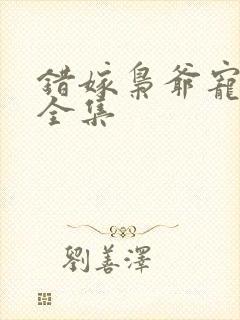 錯嫁梟爺寵
全集
劉善澤